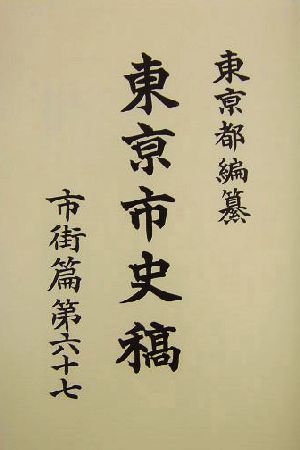 東京都編纂
東京市史稿
市街篇第六十七